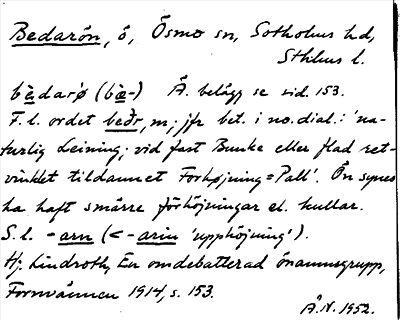 Bedarön, ö, Ösmo sn, Sotholms hd,
Sthlms l.
bèdarø (bæ̀-) Ä. belägg se sid. 153.
F. l. ordet beðr, m; jfr bet. i no. dial.: 'na-
turlig Leining; vid fast Bunke eller flad ret-
vinklet tildannet Forhøjning = Pall'. Ön synes
ha haft smärre förhöjningar el. kullar.
S. l. -arn (<-arin 'upphöjning').
Hj. Lindroth, En omdebatterad önamnsgrupp,
Fornvännen 1914, s. 153.
Å.N. 1952.